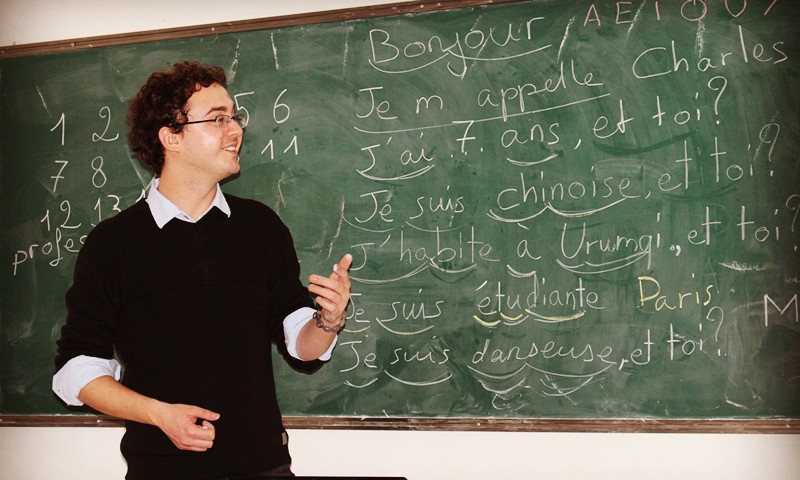 A E I O U Y
Bonjour
Je m appelle Charles
J'ai 7 ans, et toi?
Je suis chinoise, et toi?
J'habite à Urumqi, et toi?
Je suis étudiante Paris
Je suis danseuse, et toi?
M
1 2 5 6
7 8 11
12 13
profes